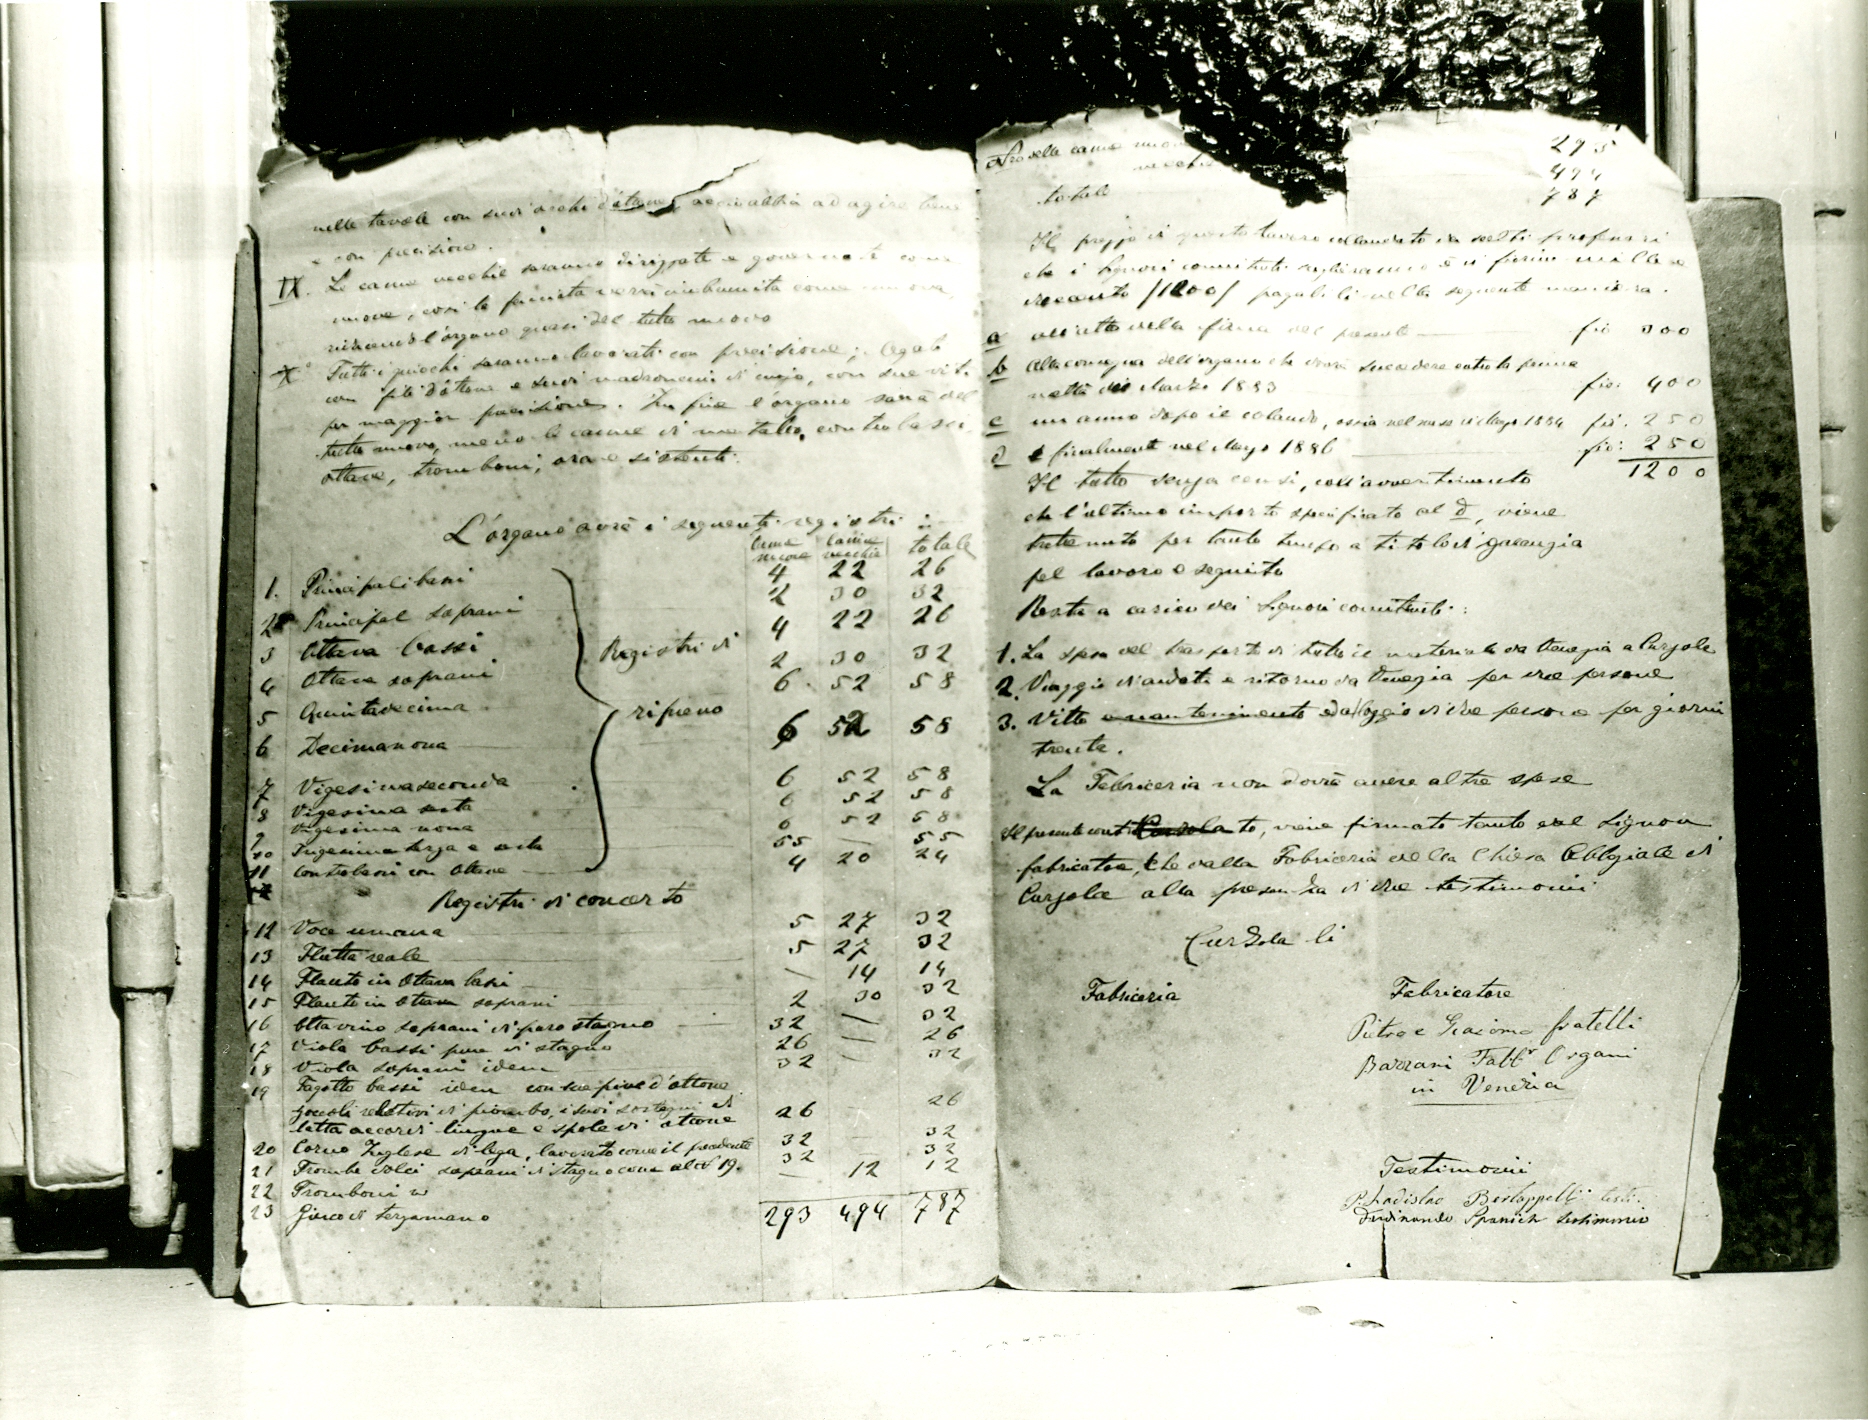 nelle tavole con suoi occhi d'ottone, acciò abbia ad agire bene
e con precisione.
IX. Le canne vecchie saranno dirizzate e governate come
nuove, così la finista verrà come nuova,
l'organo quasi del tutto nuovo
X° Tutti i giuochi saranno lavorati con precisione; legati
con fili d'ottone e suoi madroncini di cuojo, con sue viti
per maggior precisione. In fine l'organo sarà del
tutto nuovo, meno le canne di metallo, contrabassi
ottave, tromboni, ora esistenti.
L'organo avrà i seguenti registri
canne nuove canne vecchie totale
1. Principali bassi 4 22 26
2 Principal soprani 2 30 32
3 Ottava bassi 4 22 26
4 Ottava soprani 2 30 32
5 Quintadecima 6 52 58
6 Decimanona 6 52 58
Registri di
ripieno
7 Vigesimaseconda 6 52 58
8 Vigesima sesta 6 52 58
9 Vigesima nona 6 52 58
10 Trigesima terza e sesta 55 — 55
11 Contrabassi con Ottave 4 20 24
Registri di concerto
12 Voce umana 5 27 32
13 Flutta reale 5 27 32
14 Flauto in Ottava bassi — 14 14
15 Flauto in Ottava soprani 2 30 32
16 Ottavino soprani di puro stagno 32 — 32
17 Viola bassi pure di stagno 26 — 26
18 Viola soprani idem 32 — 32
19 Fagotto bassi idem con sue pive d'ottone
zoccoli relativi di piombo, i suoi sostegni di
latta accordi lingue e spole di ottone 26 — 26
20 Corno Inglese di lega, lavorato come il precedente 32 — 32
21 Trombe dolci soprani di stagno come al N° 19. 32 32
22 Tromboni — 12 12
23 Giuoco di tergamano
293 494 787
delle canne nuove 293
vecchie 494
totale 787
Il prezzo di questo lavoro collaudato da scelti professori
che i Signori committenti sceglieranno è di fiorini mille e
duecento /1200/ pagabili nella seguente maniera.
a all'atto della firma del presente — fio 300
b Alla consegna dell'organo che dovrà succedere entro la prima
metà di Marzo 1883 fio: 400
c un anno dopo il colaudo, ossia nel mese di Mago 1884 fio. 250
d e finalmente nel Mago 1886 fio: 250
1200
Il tutto senza censi, coll'avvertimento
che l'ultimo importo specificato al D, viene
trattenuto per tanto tempo a titolo di garanzia
pel lavoro eseguito
Resta a carico dei Signori committenti:
1. La spesa del trasporto di tutto il materiale da Venezia a Curzola
2. Viaggio di andata e ritorno da Venezia per due persone
3. Vitto e mantenimento ed alloggio di due persone per giorni
trenta.
La Fabriceria non dovrà avere altre spese
Il presente contratto, viene firmato tanto dal Signor
fabricatore, che dalla Fabriceria della Chiesa Abbaziale di
Curzola alla presenza di due testimonii
Curzola li
Fabriceria Fabricatore
Pietro e Giacomo fratelli
Bazzani Fabbr Organi
in Venezia
Testimonii
P. Ladislao Berlappelli testi.
Ferdinando Spanich testimonio